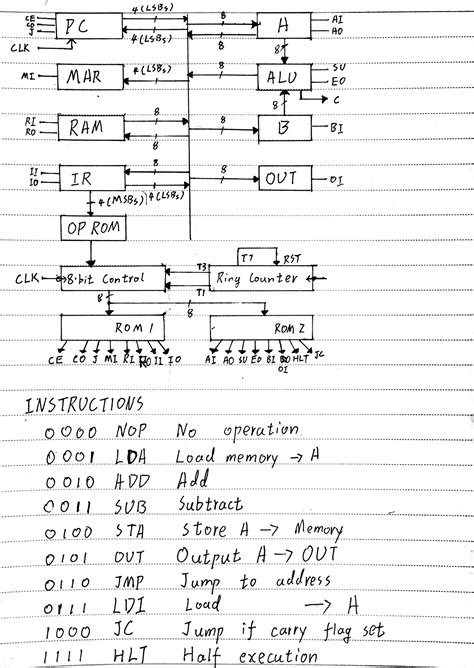 CE 4(LSBs) 8 AI
CO PC A
J 4(LSBs) 8 AO
CLK 8
MI MAR 4(LSBs) 8 ALU SU
EO
8 C
RI RAM 8 8 B BI
RO 8
II IR 8 8 OUT OI
IO 4(LSBs)
4(MSBs)
OP ROM
T7 RST
CLK 8-bit Control T3 Ring Counter
T1
8 8
ROM 1 ROM 2
CE CO J MI RI RO II IO AI AO SU EO BI OI HLT JC
INSTRUCTIONS
0000 NOP No operation
0001 LDA Load memory → A
0010 ADD Add
0011 SUB Subtract
0100 STA Store A → Memory
0101 OUT Output A → OUT
0110 JMP Jump to address
0111 LDI Load → A
1000 JC Jump if carry flag set
1111 HLT Half execution